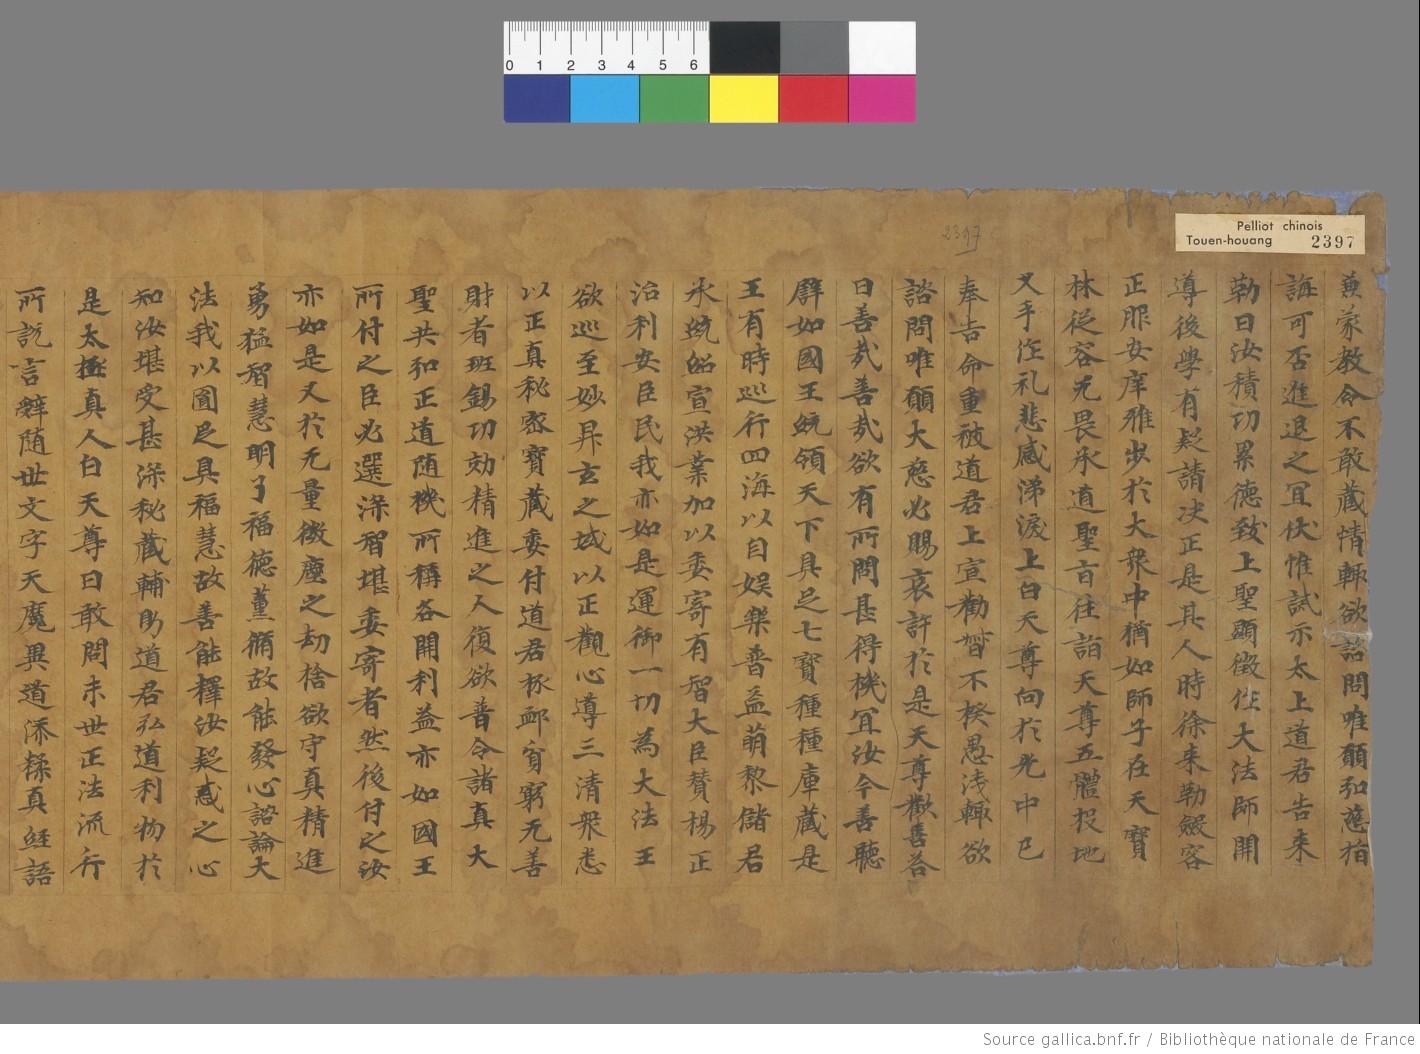 Pelliot chinois
Touen-houang 2397
2397
0 1 2 3 4 5 6
蒙教令不敢藏情輙欲諮問唯願和慈指
誨可否進退之冝伏惟試示太上道君告来
勒曰汝積功累德致上聖顯徴位大法師開
導後學有疑請决正是其人時徐来勒斂容
正服安庠雅步於大衆中猶如師子在天寳
林従容无畏承道聖旨往詣天尊五體投地
叉手作礼悲感涕淚上白天尊向於光中已
奉告命重被道君上宣勸督不揆愚浅輙欲
諮問唯願大慈必賜哀許於是天尊歡喜荅
曰善㢤善㢤欲有所問甚得機冝汝今善聽
譬如國王統領天下具足七寳種種庫藏是
王有時巡行四海以自娯樂普益萌黎儲君
承統紹宣洪業加以委寄有智大臣賛揚正
治利安臣民我亦如是運御一切為大法王
欲巡至妙昇玄之域以正觀心導三清衆悉
以正真秘密寳藏委付道君拯䘏窮无善
財者班錫功効精進之人復欲普令諸真大
聖共和正道随機所稱各開利益亦如國王
所付之臣必選深智堪委寄者然後付之汝
亦如是又於无量微塵之劫捨欲守真精進
勇猛智慧明了福徳薫脩故能發心諮論大
法我以圓足具福慧故善能釋汝疑惑之心
知汝堪受甚深秘藏輔助道君弘道利物於
是太極真人白天尊曰敢問末世正法流行
所説言辝随世文字天魔異道添糅真経語
Source gallica.bnf.fr / Bibliothèque nationale de France